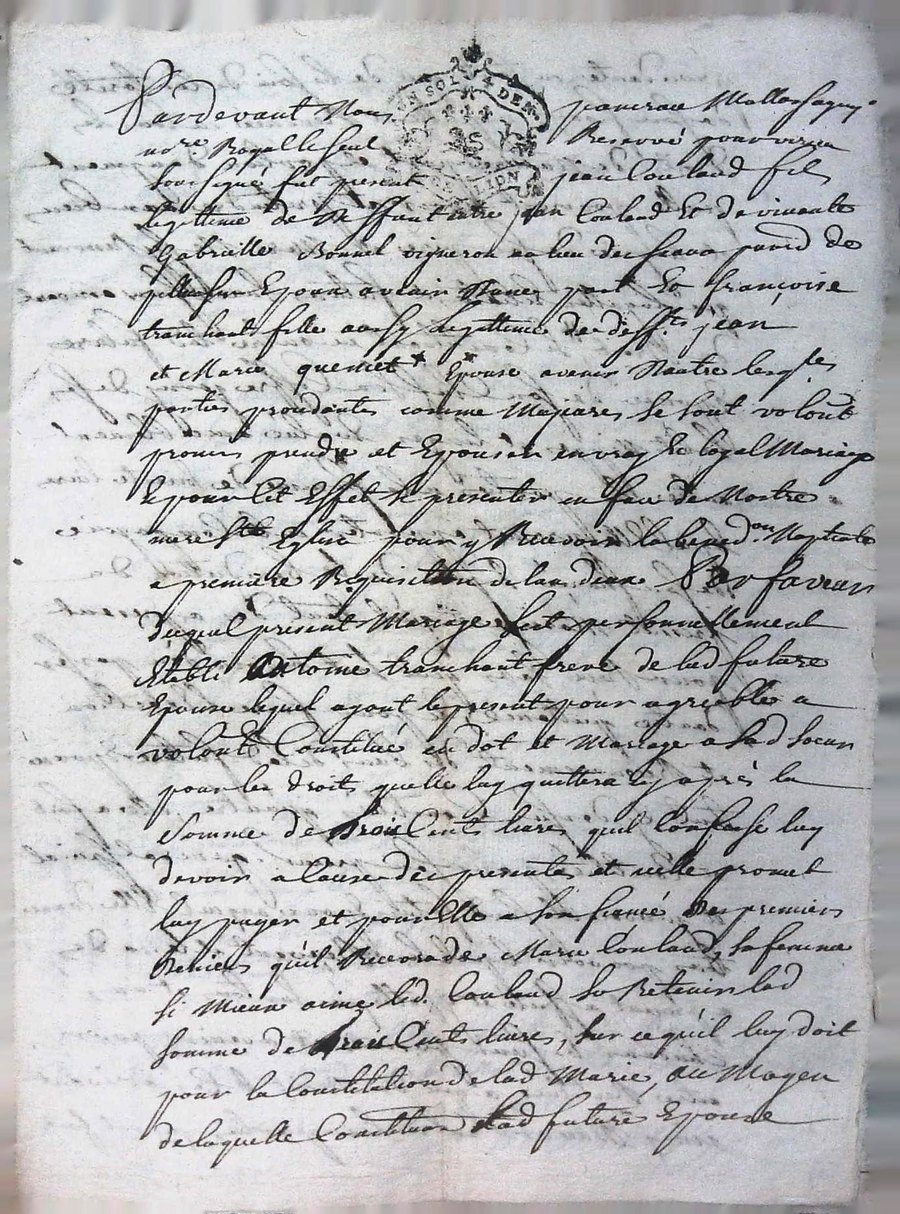 UN SOL 4 DEN.
Pardevant Nous
no.re Royal le seul Reservé pour vernu
soussigné fut present jean Couland fils
legittime de deffunt autre jean Couland Et de vivante
Gabrielle Bonnel vigneron au lieu de paroisse de
Epoux avenir d'une part Et françoise
tranchant fille aussy legittime de deff.ts jean
et Marie quemet * Epouse avenir d'autre lesq.les
parties proceddantes comme Majeures se sont volont.
promis prendre et Epouser en vray Et loyal Mariage
Et pour Cet Effet se presenter en face de Nostre
mere S.te Eglise pour y Recevoir la bened.on Nuptiale
a premiere Requisition de l'un d'eux Par faveur
duquel present Mariage s'est personnellement
Etabli Antoine tranchant frere de lad future
Epouse lequel ayant le present pour agreable a
volont. Constitué en dot et Mariage a sad soeur
pour les droits quelle luy quittera cy apres la
somme de trois Cents livres quil Confesse luy
devoir a Cause des presentes et icelle promet
luy payer et pour Elle a son fiancé des premiers
deniers qu'il Recevra de Marie Couland, sa femme
si Mieux aime led. Couland se Retenir lad
somme de trois Cents livres, sur ce qu'il luy doit
pour la Constitution de lad Marie, au Moyen
de laquelle Constitution lad future Epouse